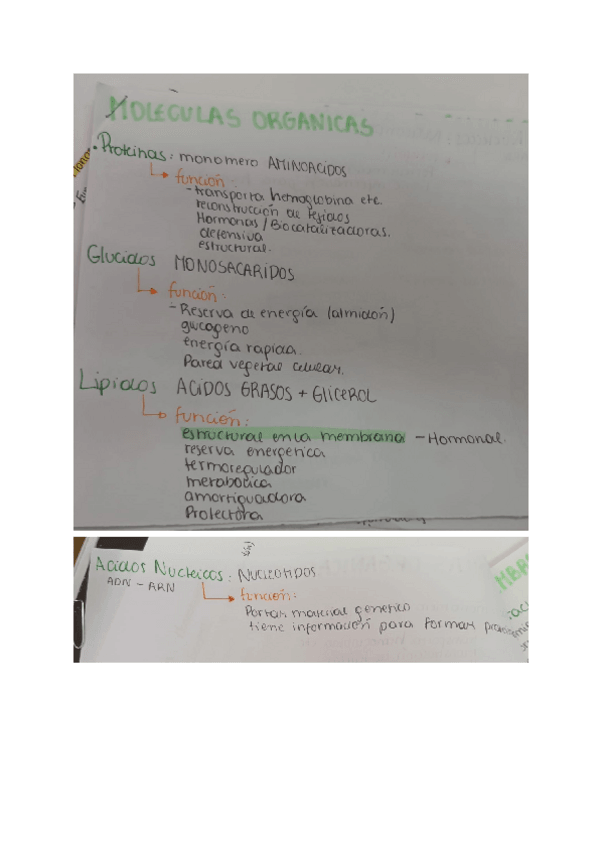 MOLECULAS ORGANICAS
• Proteinas: monomero AMINOACIDOS
función:
- transporta hemoglobina etc.
reconstrucción de tejidos
Hormonas / Biocatalizadoras.
defensiva
estructural.
Glucidos MONOSACARIDOS
función:
- Reserva de energía (almidón)
glucogeno
energía rapida.
Pared vegetal celular.
Lipidos ACIDOS GRASOS + GLICEROL
función:
estructural en la membrana - Hormonal.
reserva energetica
termoregulador
metabolica
amortiguadora
Protectora
Acidos Nucleicos: NUCLEOTIDOS
ADN - ARN
función:
Portan material genetico
tiene información para formar